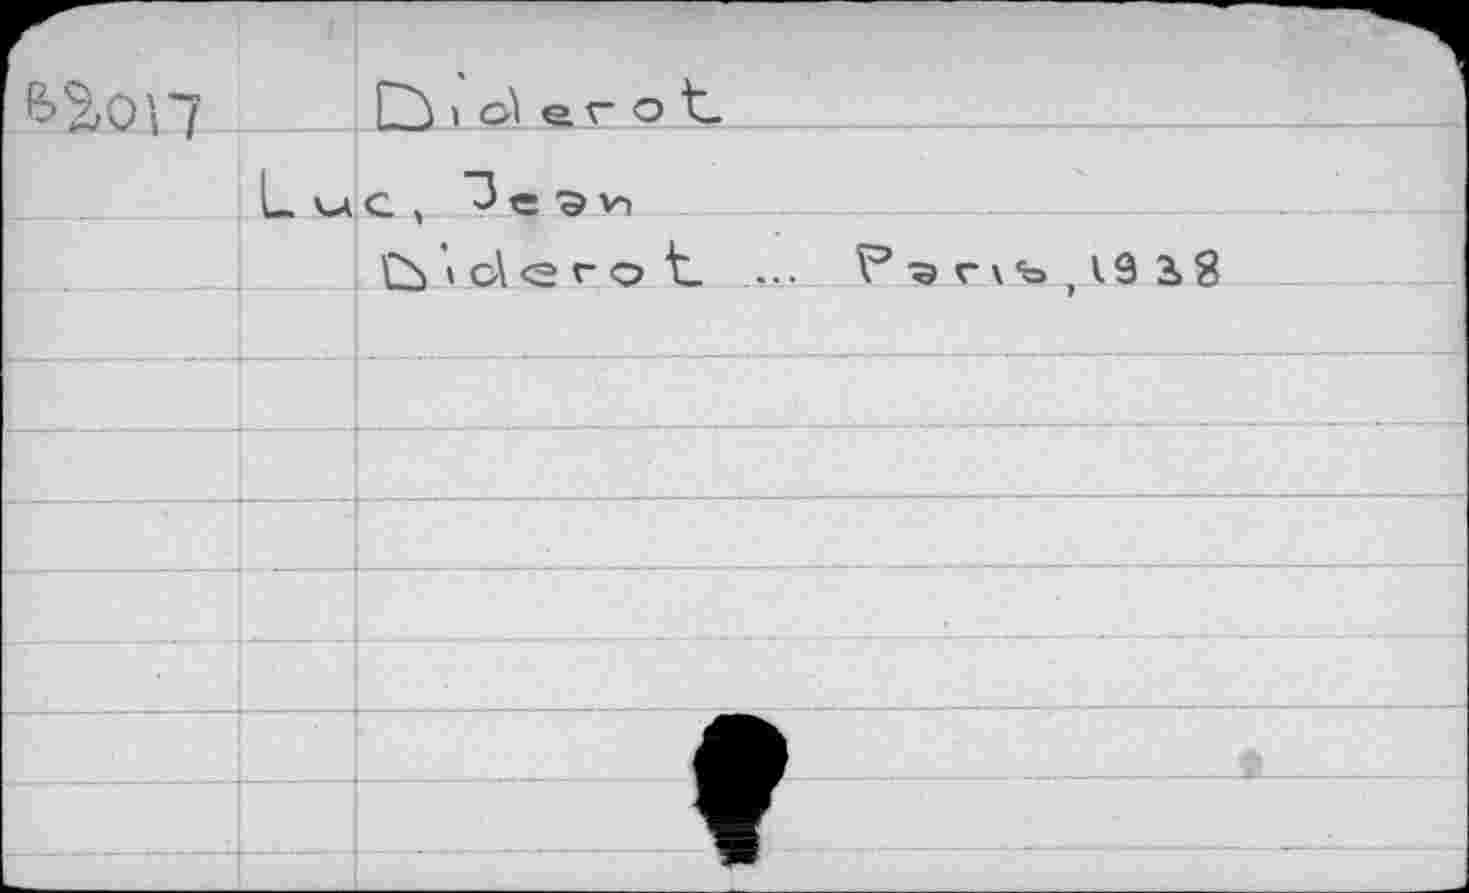 82017 Diderot
Luc, Jean
Diderot ... Paris, 1938